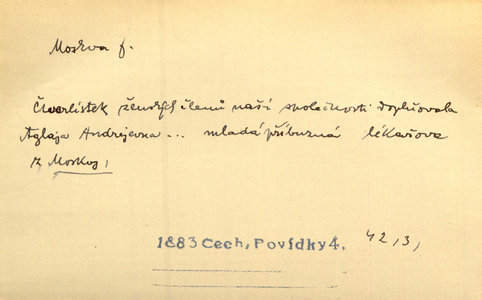 Moskva f.
Čtverlístek ženských členů naší společnosti doplňovala
Aglaja Andrejevna ... mladá příbuzná lékařova
z Moskvy,
1883 Cech, Povídky 4. 42, 3,